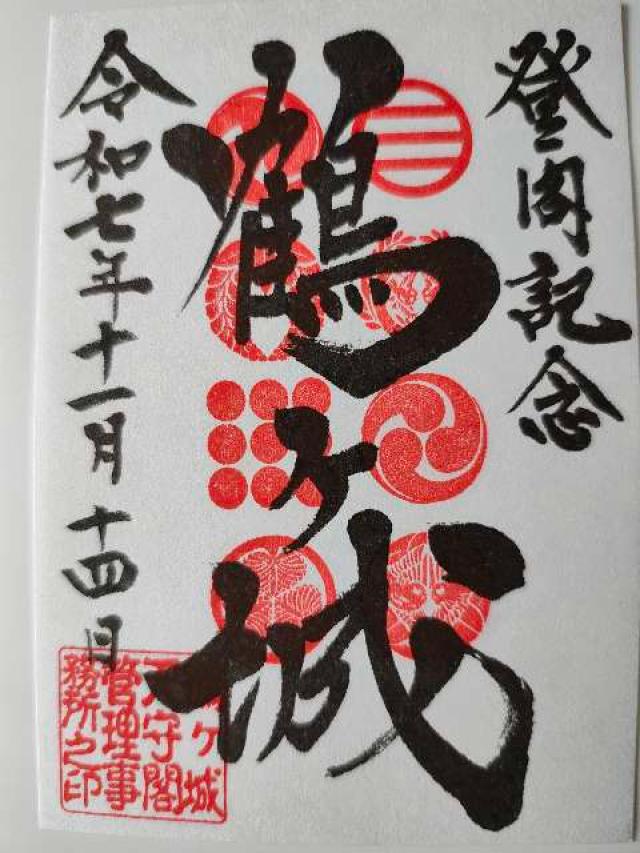 登閣記念
鶴ヶ城
令和七年十一月十四日
鶴ヶ城
天守閣
管理事
務所之印